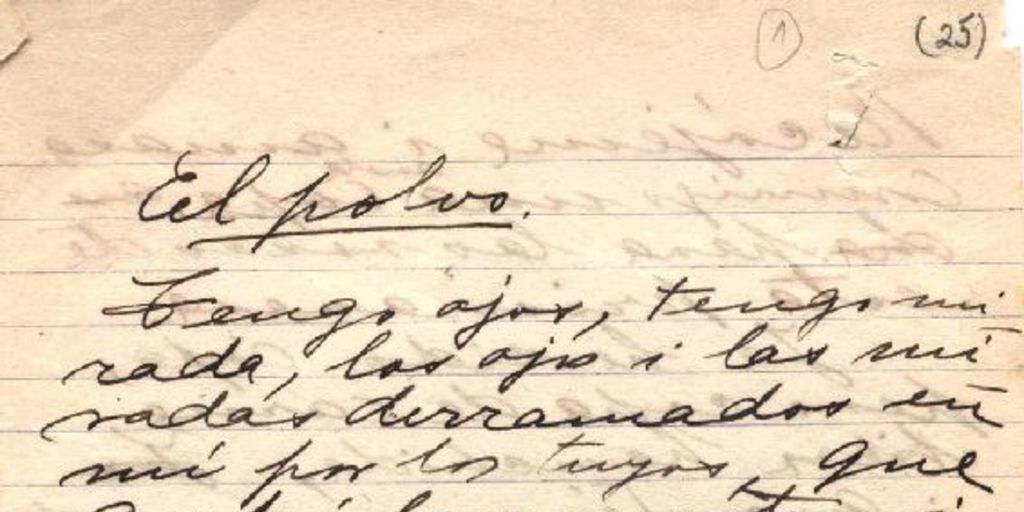 1
(25)
El polvo.
Tengo ojos, tengo mi
rada, los ojos i las mi
radas derramados en
mí por los tuyos, que